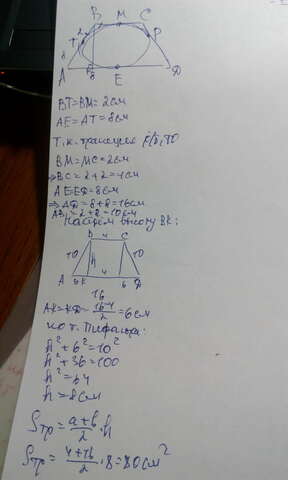 B M C
T 2 P
8
A 8 E D
BT=BM=2см
AE=AT=8см
Т.к. трапеция р/б, ТО
BM=MC=2см
⇒BC=2+2=4см
AE=ED=8см
⇒AD=8+8=16см
AB=2+8=10см
Найдем высоту BK:
B 4 C
10 h 10
A 6 K 4 6 D
16
AK=KD=(16-4)/2=6см
по т. Пифагора:
h²+6²=10²
h²+36=100
h²=64
h=8см
Sтр=(a+b)/2·h
Sтр=(4+16)/2·8=80см²